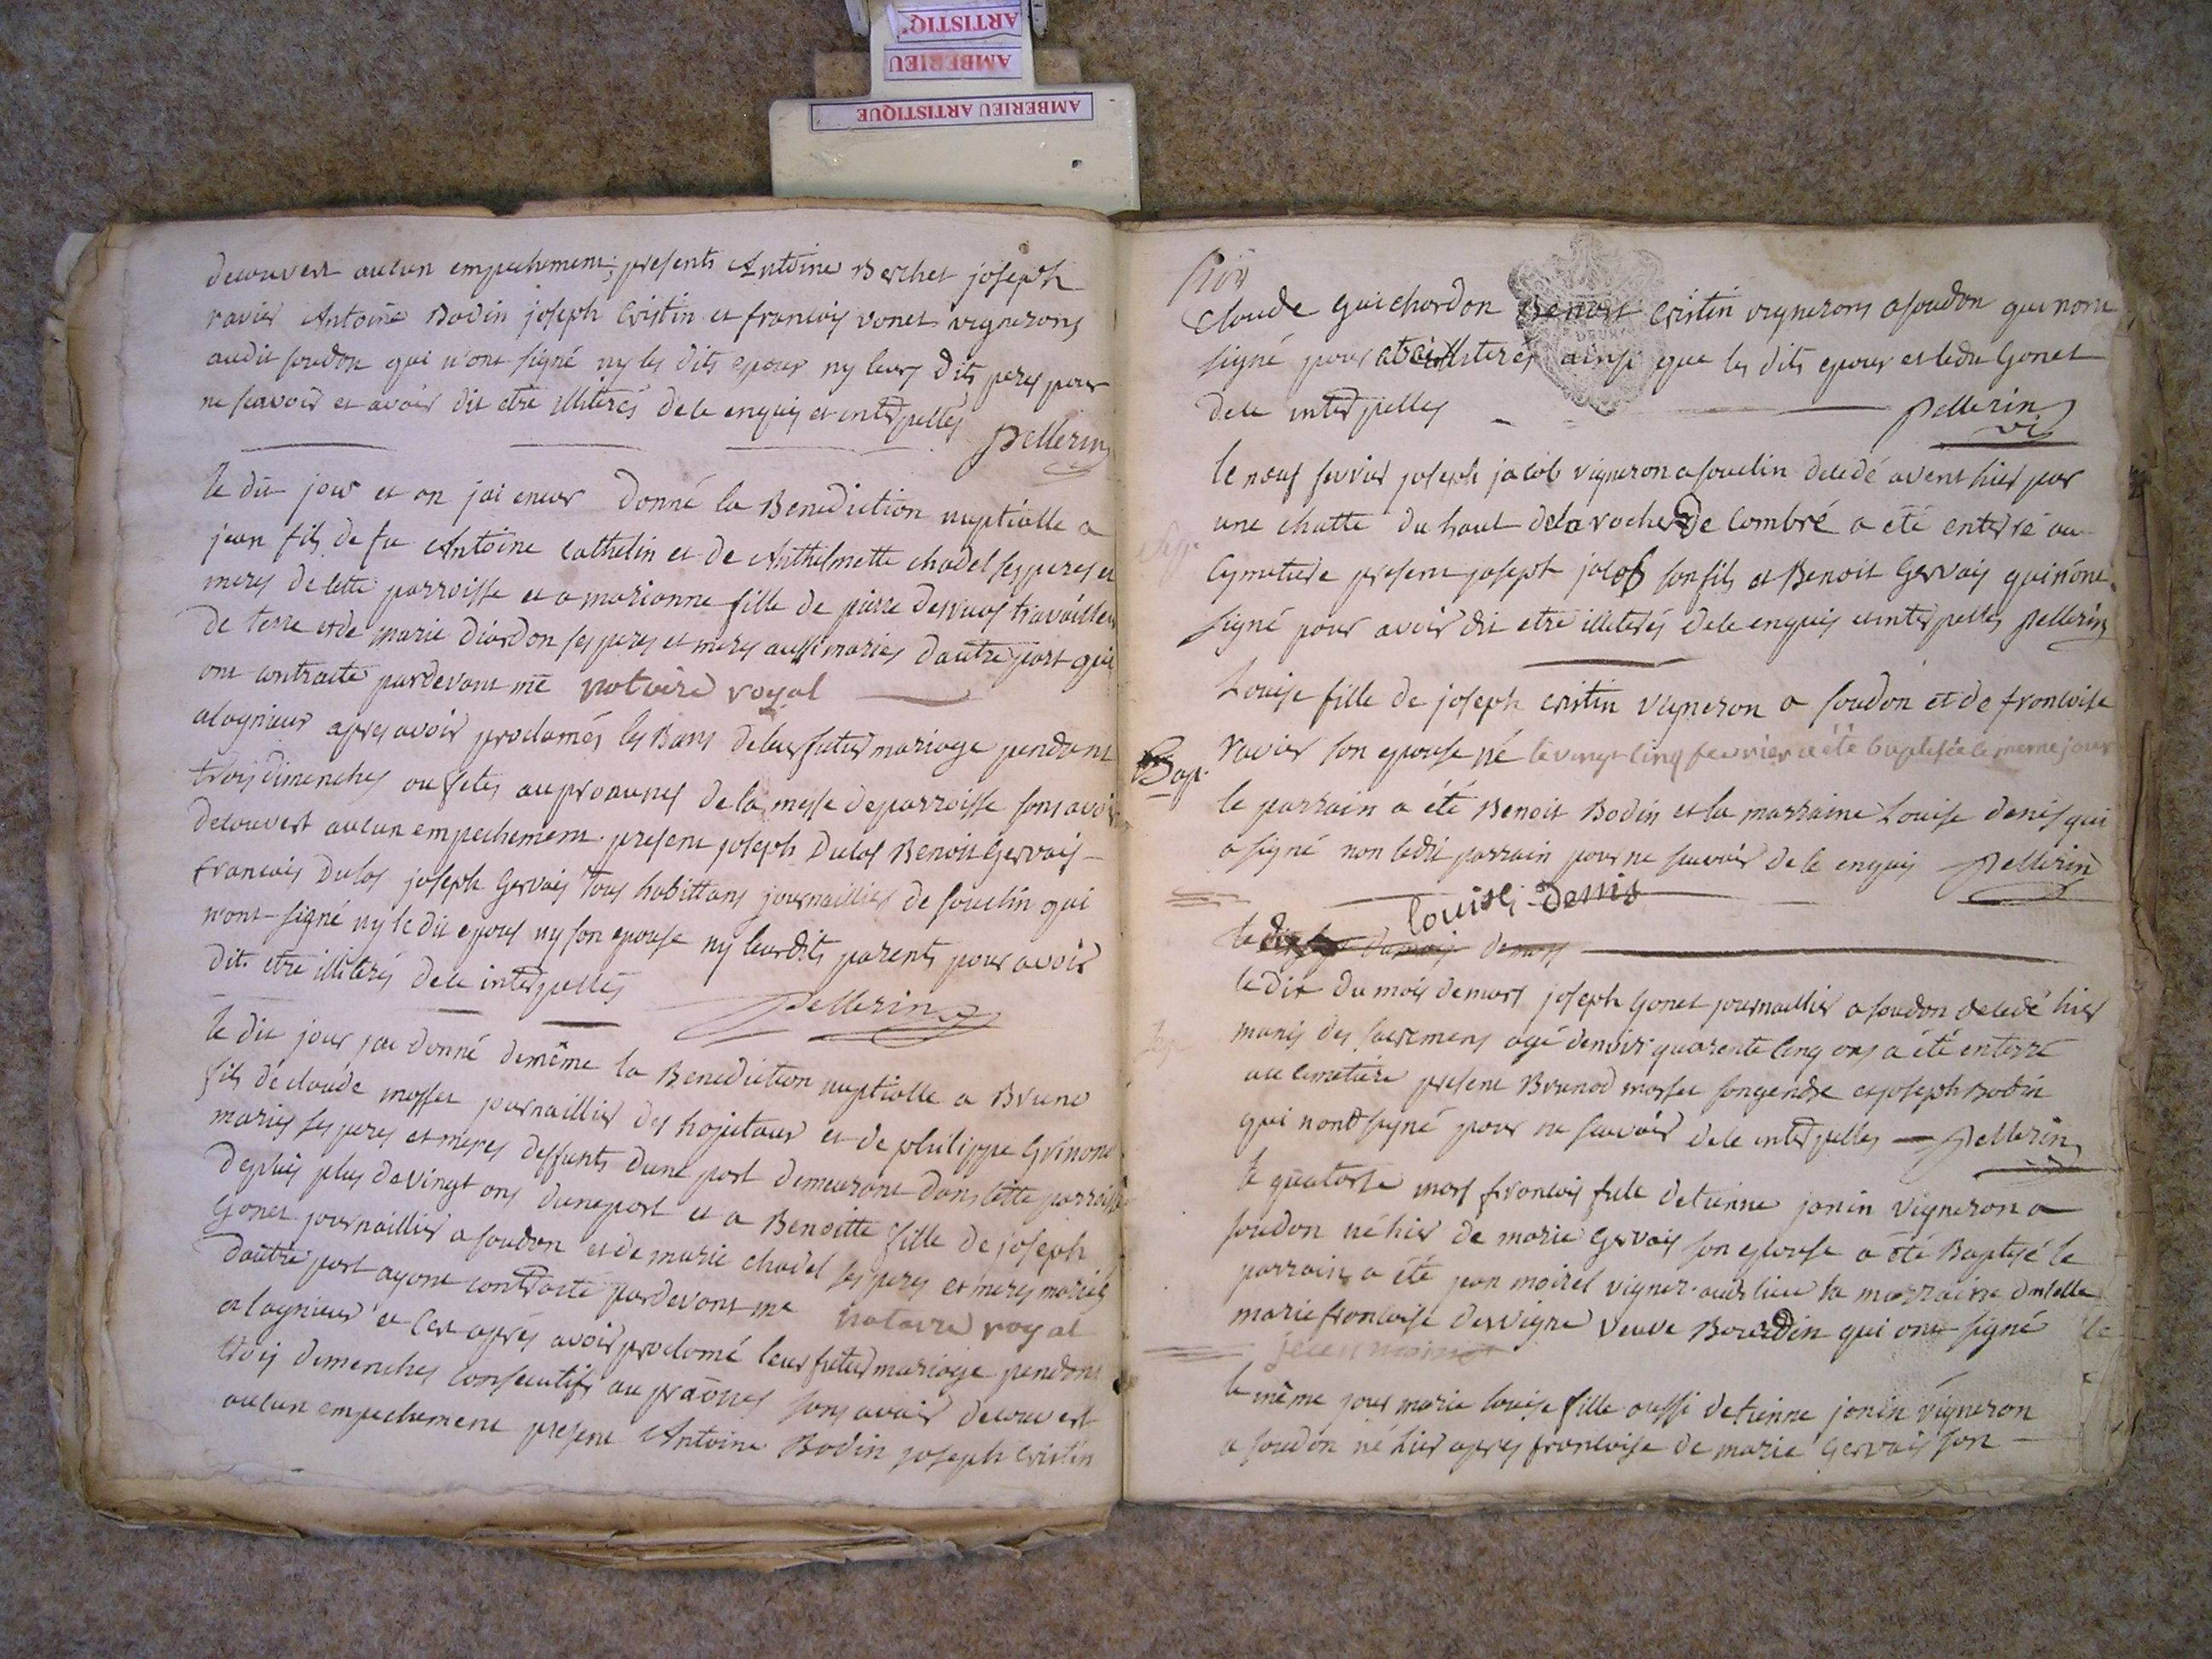 ARTISTIQ
AMBERIEU
AMBERIEU ARTISTIQUE
decouvert aucun empechement; presents Antoine Berchet joseph
ravier Antoine Bodin joseph Cristin et francois vonet vignerons
audit soudon qui n'ont signé ny les dits epoux ny leurs dits peres pour
ne scavoir et avoir dit etre illiterés de ce enquis et interpellés
Pellerin
le dit jour et an jai encor donné la Benediction nuptialle a
jean fils de fu Antoine Cathelin et de Anthelmette chadel ses peres et
meres de cette parroisse et a marianne fille de piere travailleur
de terre et de marie diardon ses peres et meres aussi mariés dautre part qui
ont contracté pardevant me notaire royal
a lagnieux apres avoir proclamés les Bans de leur futur mariage pendant
trois dimenches ou fetes au pronunes de la messe de parroisse sans avoir
decouvert aucun empechement present joseph Dulos Benoit Gervais
francois Dulos joseph Gervais tous habittans journaillier de souclin qui
n'ont signé ny le dit epoux ny son epouse ny leur dits parents pour avoir
dit etre illiterés de ce interpellés
Pellerin
le dit jour jai donné de même la Benediction nuptialle a Bruno
fils de claude mosset journaillier des hopitaux et de philippe Grinond
mariés ses peres et meres deffunts dune part demeurant dans cette parroisse
depuis plus de vingt ans dune part et a Benoitte fille de joseph
Gonet journaillier a soudon et de marie chadel ses peres et meres mariés
dautre part ayant contracté pardevant me notaire royal
a lagnieux et ce apres avoir proclamé leur futur mariage pendant
trois dimenches consecutifs au praônes sans avoir decouvert
aucun empechement present Antoine Bodin joseph Cristin
Claude Guichardon Benoit Cristin vignerons a soudon qui nont
signé pour etre illiterés ainsi que les dits epoux et ledit Gonet
de ce interpellés
Pellerin
le neuf fevrier joseph jacob vigneron a souclin decedé avant hier par
une chutte du haut de la roche de Combré a été enterré au
Cymetiere present joseph jacob son fils et Benoit Gervais qui nont
signé pour avoir dit etre illiterés de ce enquis et interpellés Pellerin
Bap.
Louise fille de joseph Cristin vigneron a soudon et de francoise
ravier son epouse né le vingt cinq fevrier a été baptisée le meme jour
le parrain a été Benoit Bodin et la marraine Louise denis qui
a signé non ledit parrain pour ne scavoir de ce enquis Pellerin
louise denis
le dix du mois de mars
le dix du mois de mars joseph Gonet journaillier a soudon decedé hier
munis des sacremens agé denvir quarente cinq ans a été enterré
au cimetiere present Brunod mosset son gendre et joseph Bodin
qui nont signé pour ne scavoir de ce interpellés Pellerin
le quatorse mars francois fils detienne janin vigneron a
soudon né hier de marie Gervais son epouse a été Baptisé le
parrain a été jean moirel vigner. aud. lieu la marraine
marie francoise dervigne veuve Bourdin qui ont signé
le même jour marie louise fille aussi detienne janin vigneron
a soudon né hier apres francoise de marie Gervais son